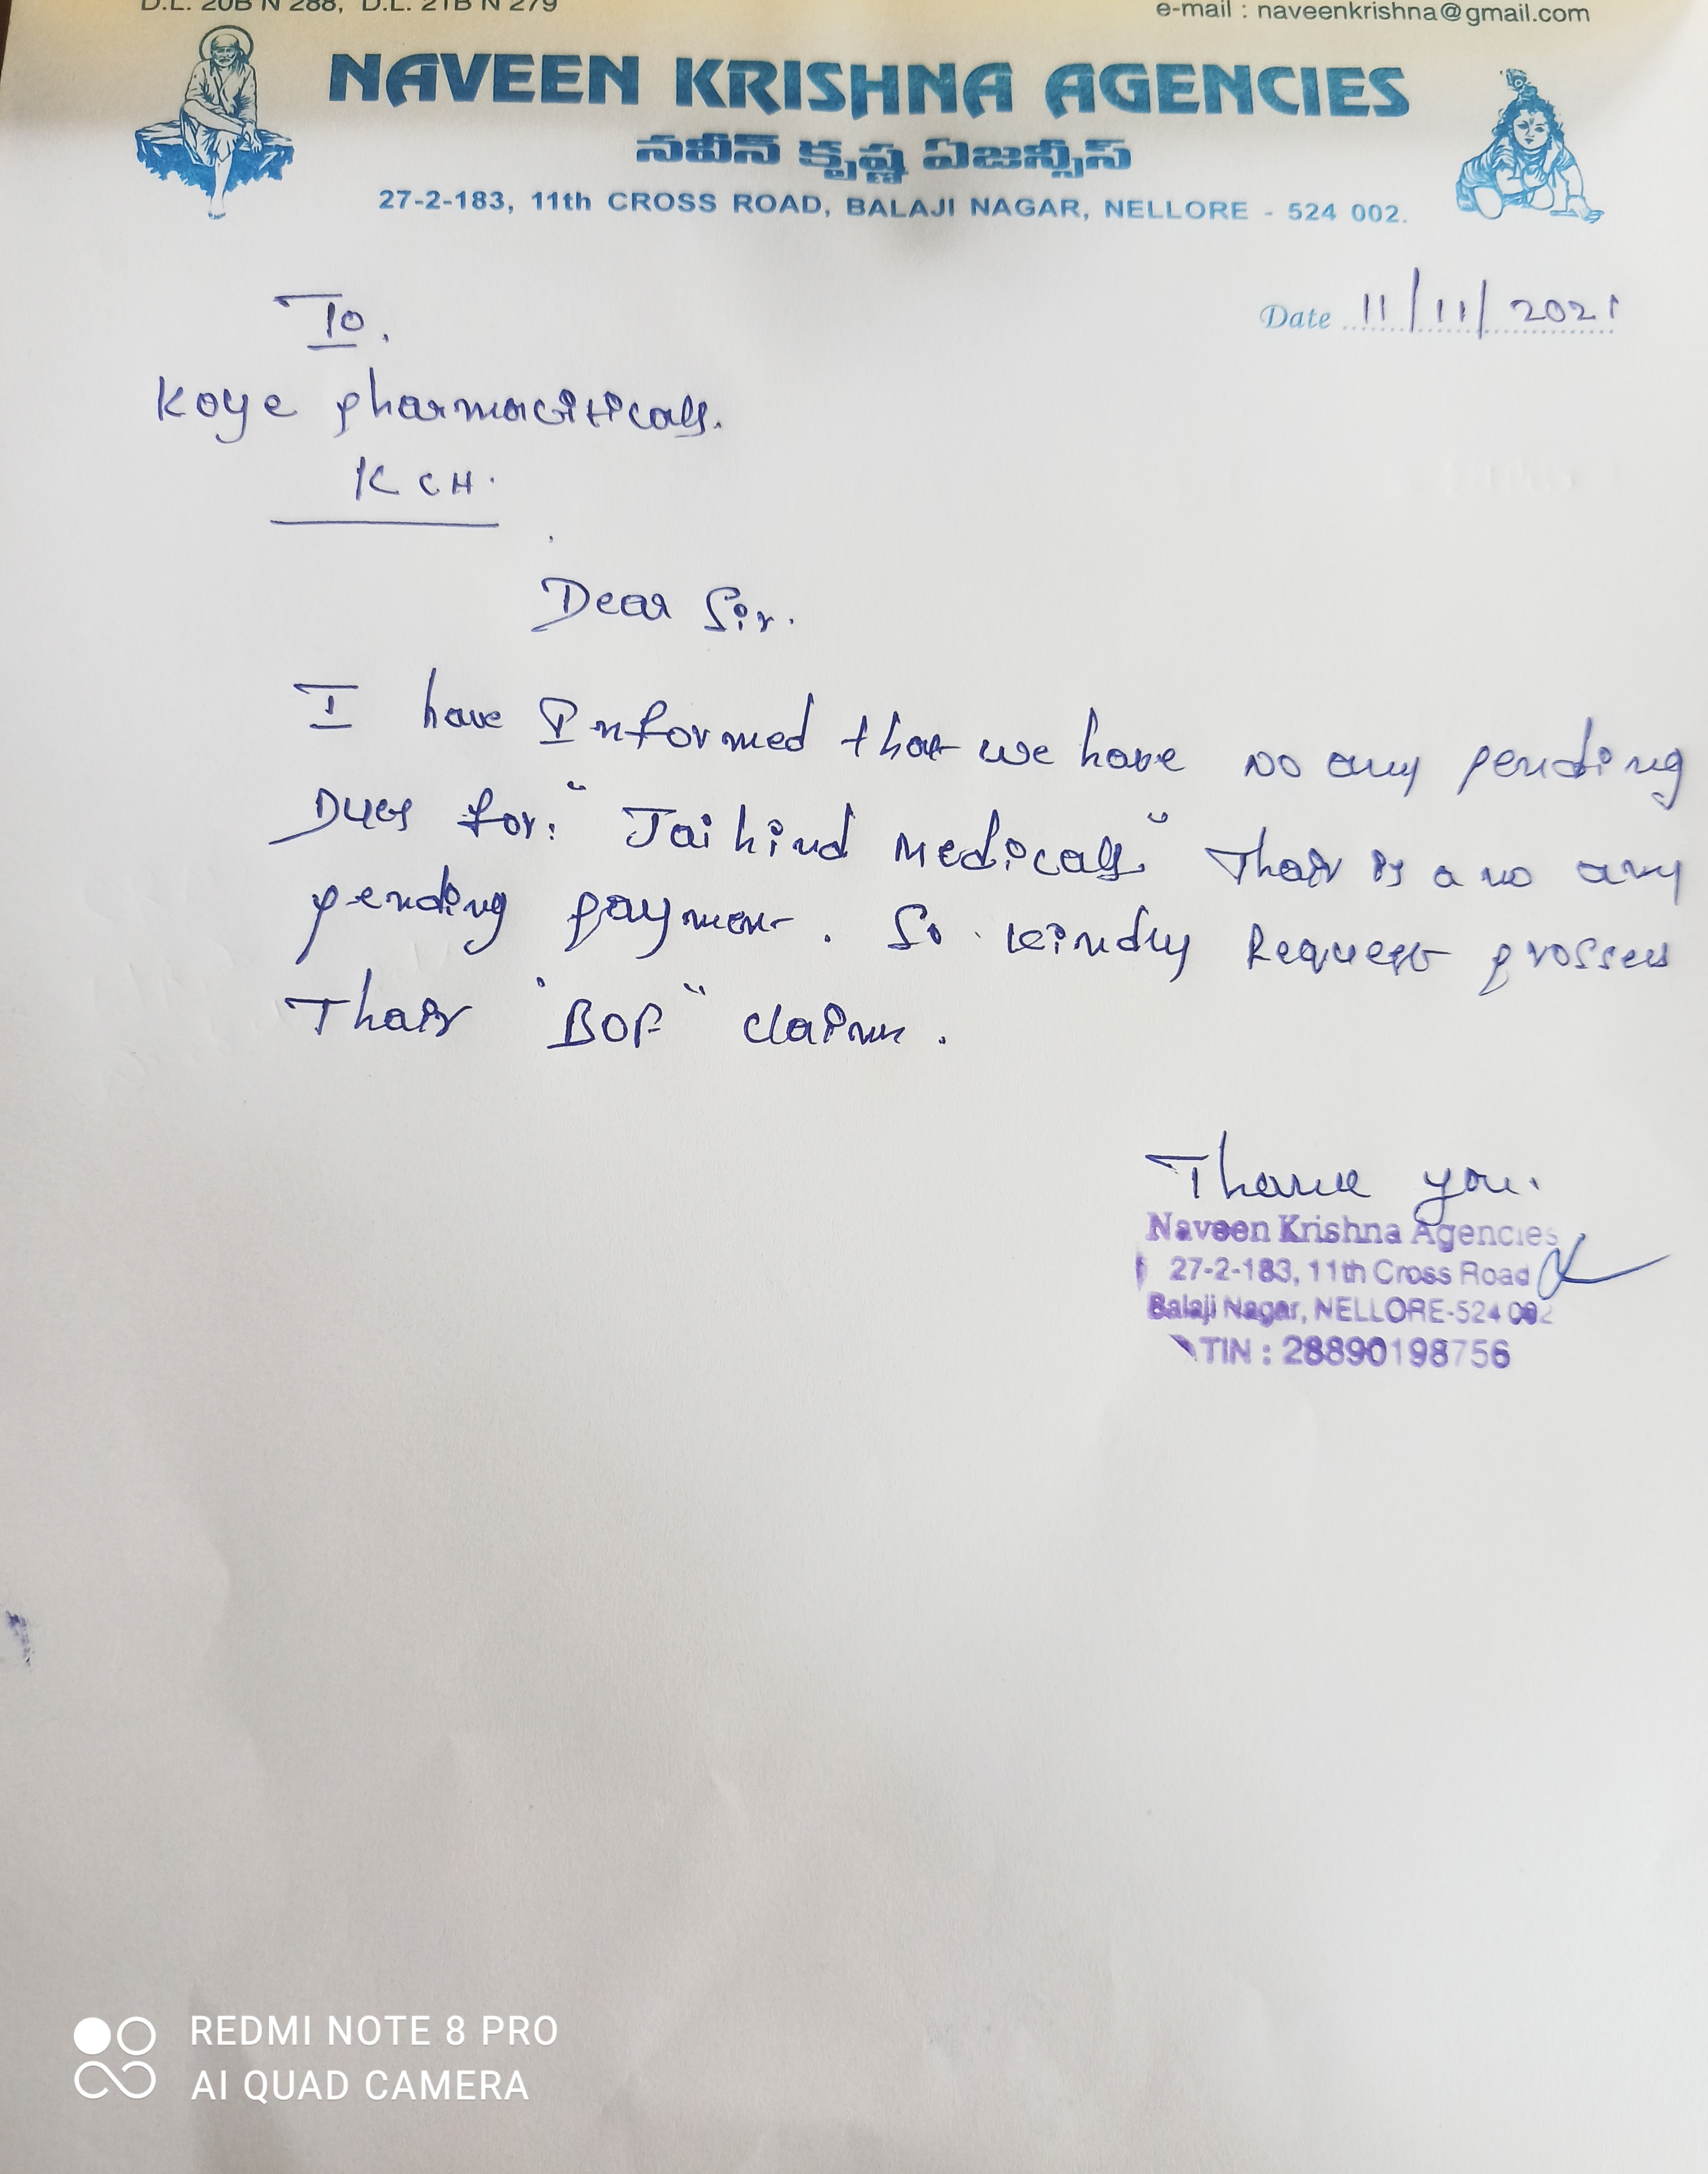 D.L. 20B N 288, D.L. 21B N 279
e-mail : naveenkrishna@gmail.com
NAVEEN KRISHNA AGENCIES
నవీన్ కృష్ణ ఏజన్సీస్
27-2-183, 11th CROSS ROAD, BALAJI NAGAR, NELLORE - 524 002.
Date 11/11/2021
To.
Koye pharmaciticals.
KCH.
Dear Sir.
I have Informed that we have no any pending
Dues for: "Jaihind Medicals" Thair is a no any
pending payment. So kindly Request prossess
Thair "BOF" claim.
Thank you.
Naveen Krishna Agencies
27-2-183, 11th Cross Road
Balaji Nagar, NELLORE-524 002
TIN : 28890198756
REDMI NOTE 8 PRO
AI QUAD CAMERA